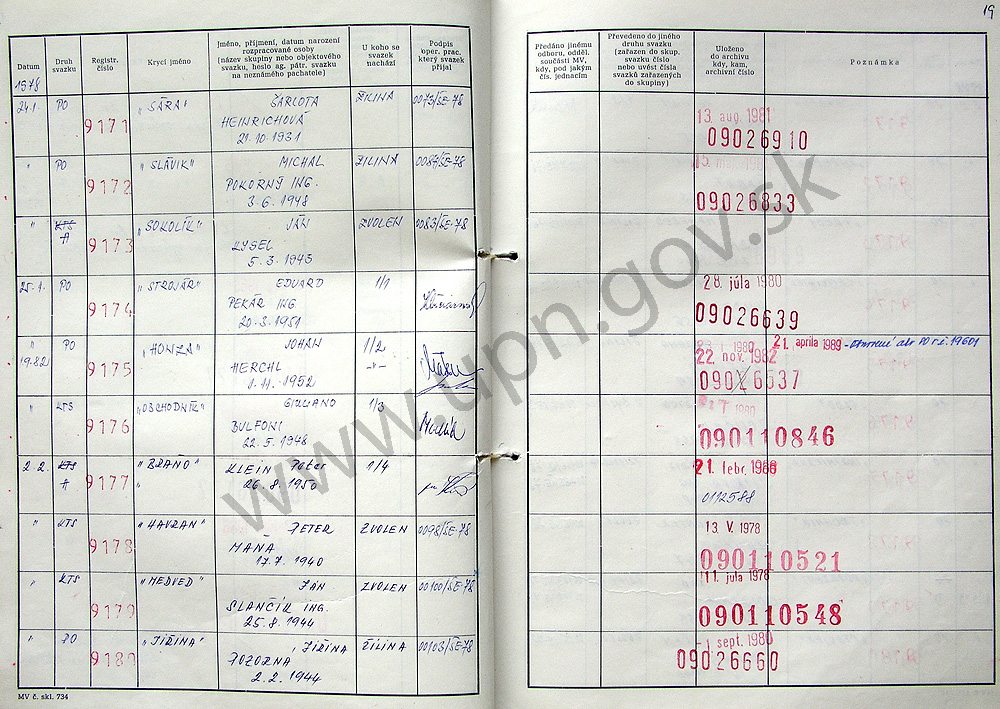 19
Datum
Druh svazku
Registr. číslo
Krycí jméno
Jméno, příjmení, datum narození
rozpracované osoby
(název skupiny nebo objektového
svazku, heslo ag. pátr. svazku
na neznámého pachatele)
U koho se
svazek
nachází
Podpis
oper. prac.
který svazek
přijal
Předáno jinému
odboru, odděl.
součásti MV,
kdy, pod jakým
čís. jednacím
Převedeno do jiného
druhu svazku
(zařazen do skup.
svazku číslo
nebo uvést čísla
svazků zařazených
do skupiny)
Uloženo
do archivu
kdy, kam,
archivní číslo
Poznámka
1978
24.1. PO 9171 „SÁRA" ŠARLOTA ŽILINA 0073/SE-78
HEINRICHOVÁ
21.10.1931
13. aug. 1981
09026910
" PO 9172 „SLÁVIK" MICHAL ŽILINA 0087/SE-78
POKORNÝ ING.
3.6.1948
09026833
" KTS A 9173 „SOKOLÍK" JÁN ZVOLEN 0083/SE-78
KYSEL
5.3.1943
25.1. PO 9174 „STROJÁR" EDUARD 1/1
PEKÁR ING
20.3.1951
28. júla 1980
09026639
" PO 9175 „HONZA" JOHAN 1/2
19.82 HERCHL -"-
1.11.1952
22 nov. 1982
21. apríla 1989
09026537
" KTS 9176 „OBCHODNÍK" GIULIANO 1/3
BULFONI
22.5.1948
090110846
2.2. KTS A 9177 „BRANO" KLEIN Peter 1/4
26.8.1950
21. febr. 1988
0112588
" KTS 9178 „HAVRAN" PETER ZVOLEN 0098/SE-78
MAŇA
17.7.1940
13. V. 1978
090110521
" KTS 9179 „MEDVEĎ" JÁN ZVOLEN 00100/SE-78
SLANČÍK ING.
25.8.1944
11. júla 1978
090110548
" PO 9180 „JIŘINA" JIŘINA ŽILINA 00103/SE-78
POZORNA
2.2.1944
-1 sept. 1980
09026660
MV č. skl. 734
www.upn.gov.sk